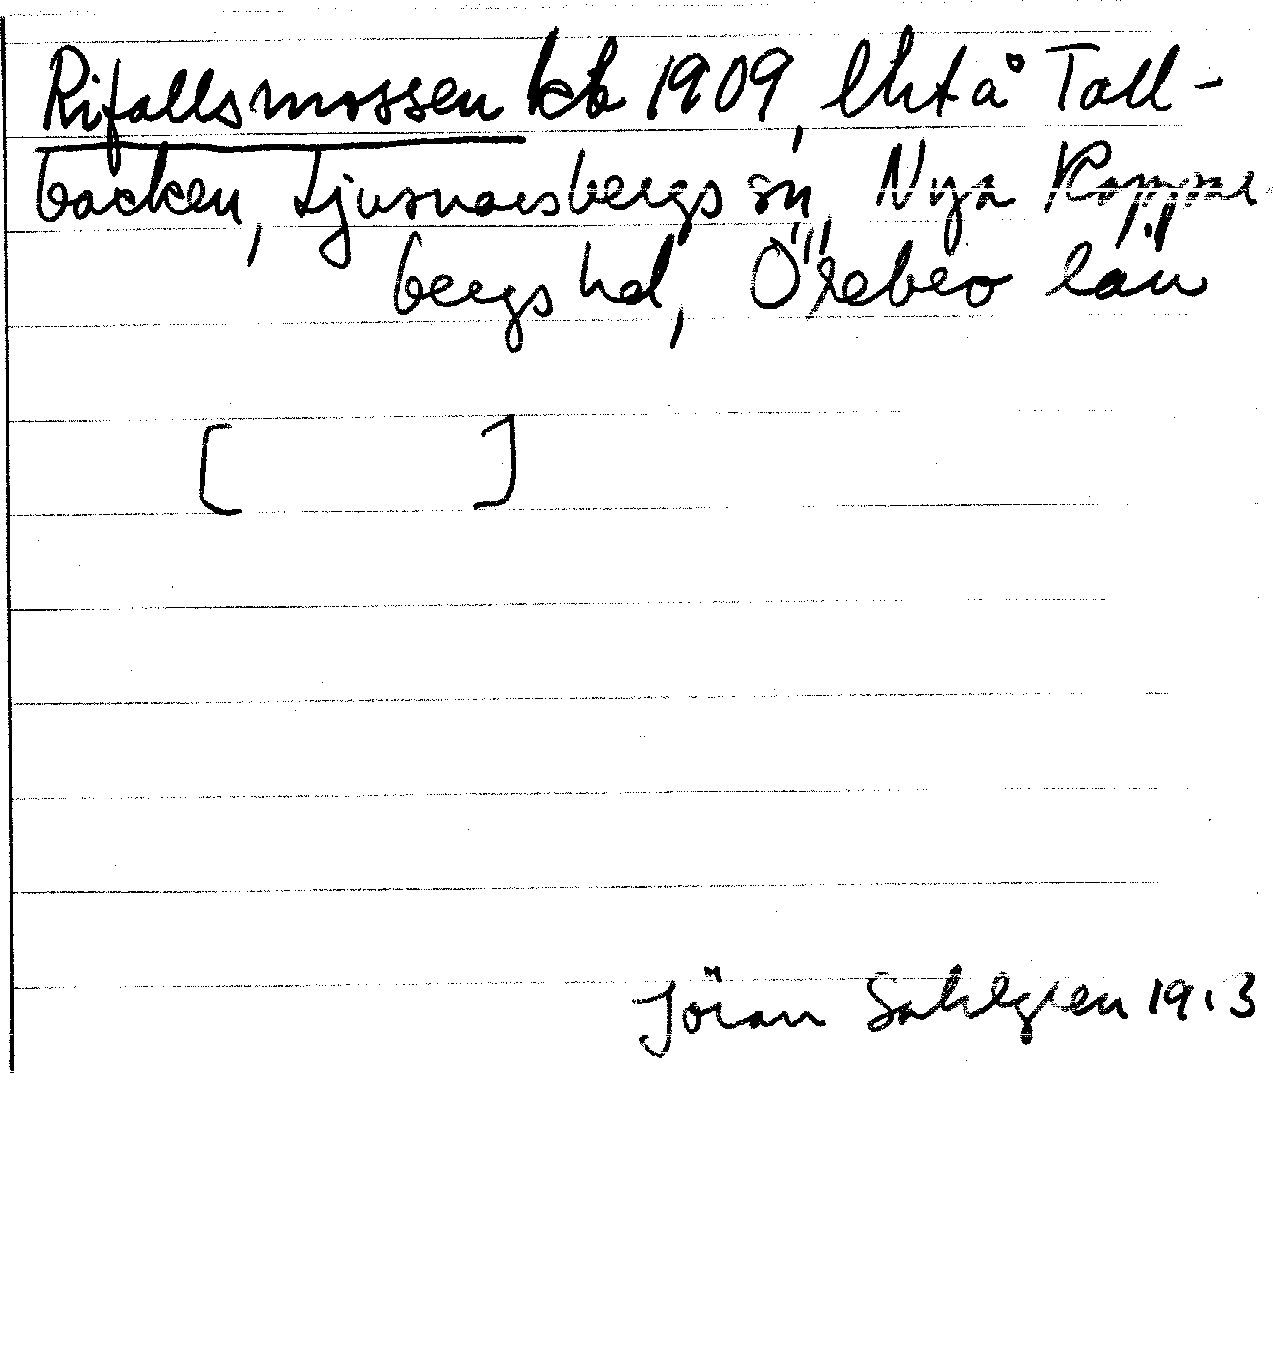 Rifallsmossen kb 1909, lht å Tall-
backen, Ljusnarsbergs sn, Nya Koppar-
bergs hd, Örebro län
[ ]
Jöran Sahlgren 1913